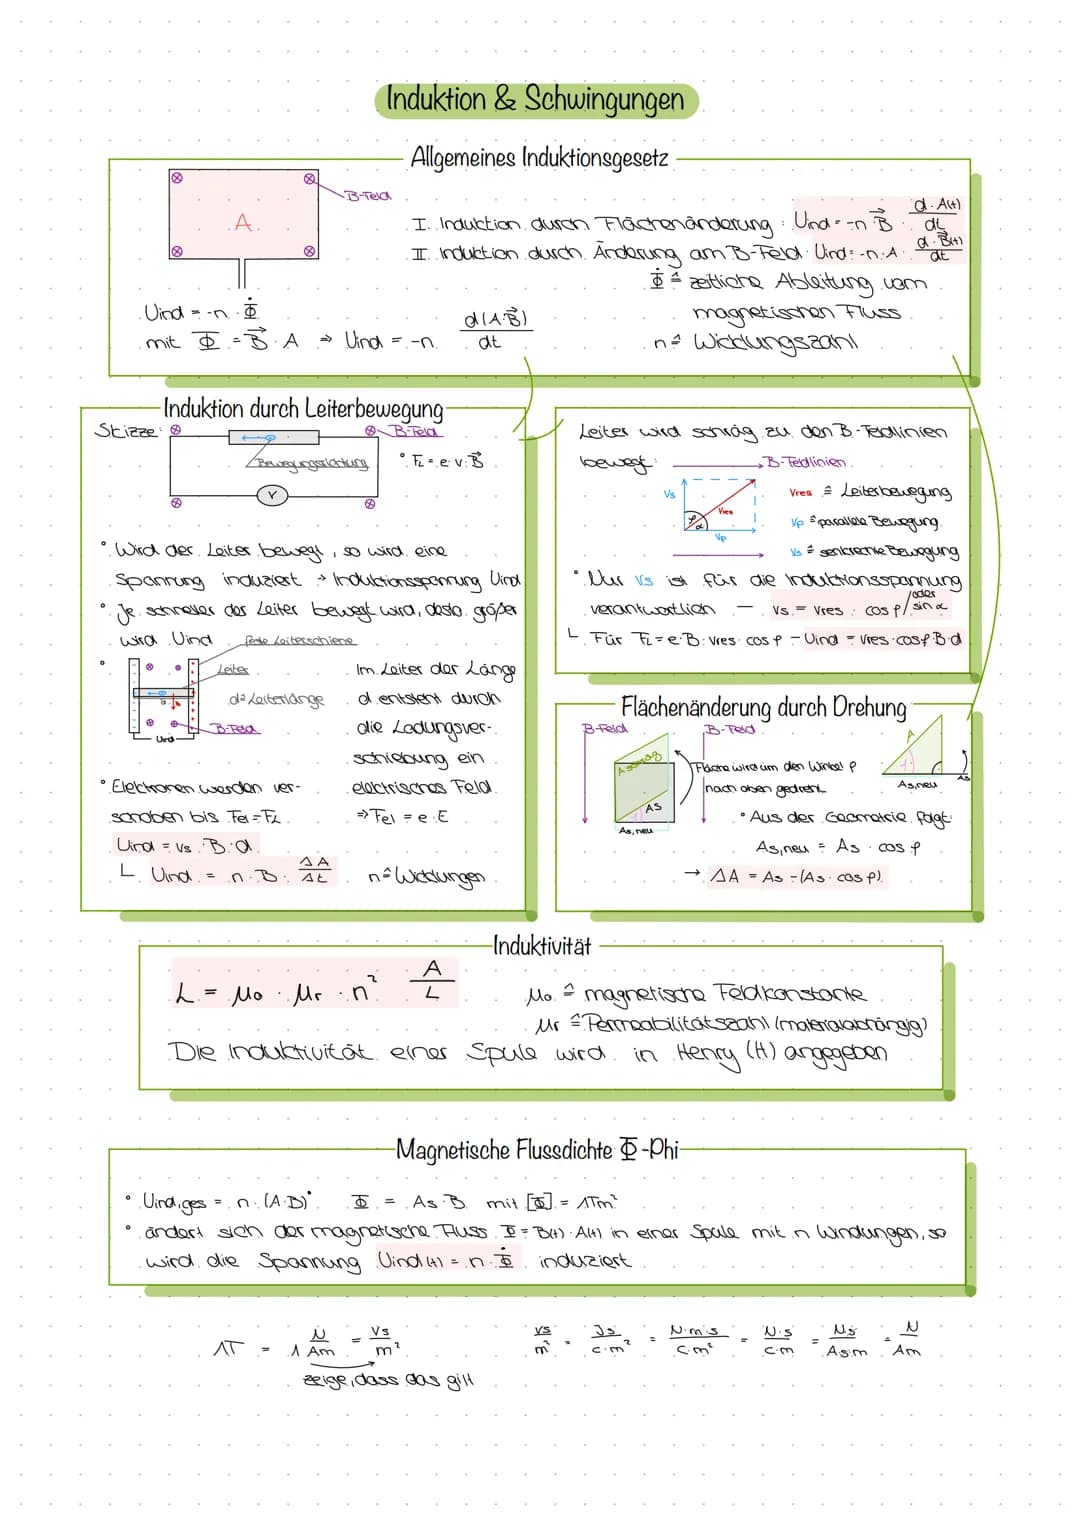 Induktion & Schwingungen
Allgemeines Induktionsgesetz
B-Feld
A
I. Induktion durch Flächenänderung: Uind = -n · B⃗ · d·A(t)/dt
II. Induktion durch Änderung am B-Feld: Uind = -n · A · d·B⃗(t)/dt
Φ̇ ≙ zeitliche Ableitung vom
magnetischen Fluss
n ≙ Wicklungszahl
Uind = -n · Φ̇
mit Φ = B⃗ · A → Uind = -n · d(A·B⃗)/dt
Induktion durch Leiterbewegung
Skizze:
B-Feld
Bewegungsrichtung
V
° FL = e·v·B⃗
° Wird der Leiter bewegt, so wird eine
Spannung induziert → Induktionsspannung Uind
° Je schneller der Leiter bewegt wird, desto größer
wird Uind
feste Leiterschiene
Leiter
d ≙ Leiterlänge
B-Feld
Uind
Im Leiter der Länge
d entsteht durch
die Ladungsver-
schiebung ein
elektrisches Feld.
⇒ Fel = e·E
° Elektronen werden ver-
schoben bis Fel = FL
Uind = vs · B · d
L Uind = n · B · ΔA/Δt
n ≙ Wicklungen
Leiter wird schräg zu den B-Feldlinien
bewegt:
B-Feldlinien
vs
φ
α
vres
vp
vres ≙ Leiterbewegung
vp ≙ parallele Bewegung
vs ≙ senkrechte Bewegung
° Nur vs ist für die Induktionsspannung
verantwortlich — vs = vres · cos φ / oder sin α
L Für FL = e·B·vres·cos φ – Uind = vres·cosφ·B·d
Flächenänderung durch Drehung
B-Feld
B-Feld
A schräg
As
As, neu
Fläche wird um den Winkel φ
nach oben gedreht
A
As,neu
As
° Aus der Geometrie folgt:
As,neu = As · cos φ
→ ΔA = As – (As · cos φ)
Induktivität
L = μo · μr · n² · A/L
μo ≙ magnetische Feldkonstante
μr ≙ Permeabilitätszahl (materialabhängig)
Die Induktivität einer Spule wird in Henry (H) angegeben
Magnetische Flussdichte Φ-Phi
° Uind,ges = n · (A·B)˙ Φ = As·B mit [Φ] = 1Tm²
° ändert sich der magnetische Fluss Φ = B(t) · A(t) in einer Spule mit n Windungen, so
wird die Spannung Uind(t) = n · Φ̇ induziert.
1T = 1 N/Am = Vs/m²
zeige, dass das gilt
Vs/m² = Js/C·m² = N·m·s/C·m² = N·s/C·m = Ns/As·m = N/Am